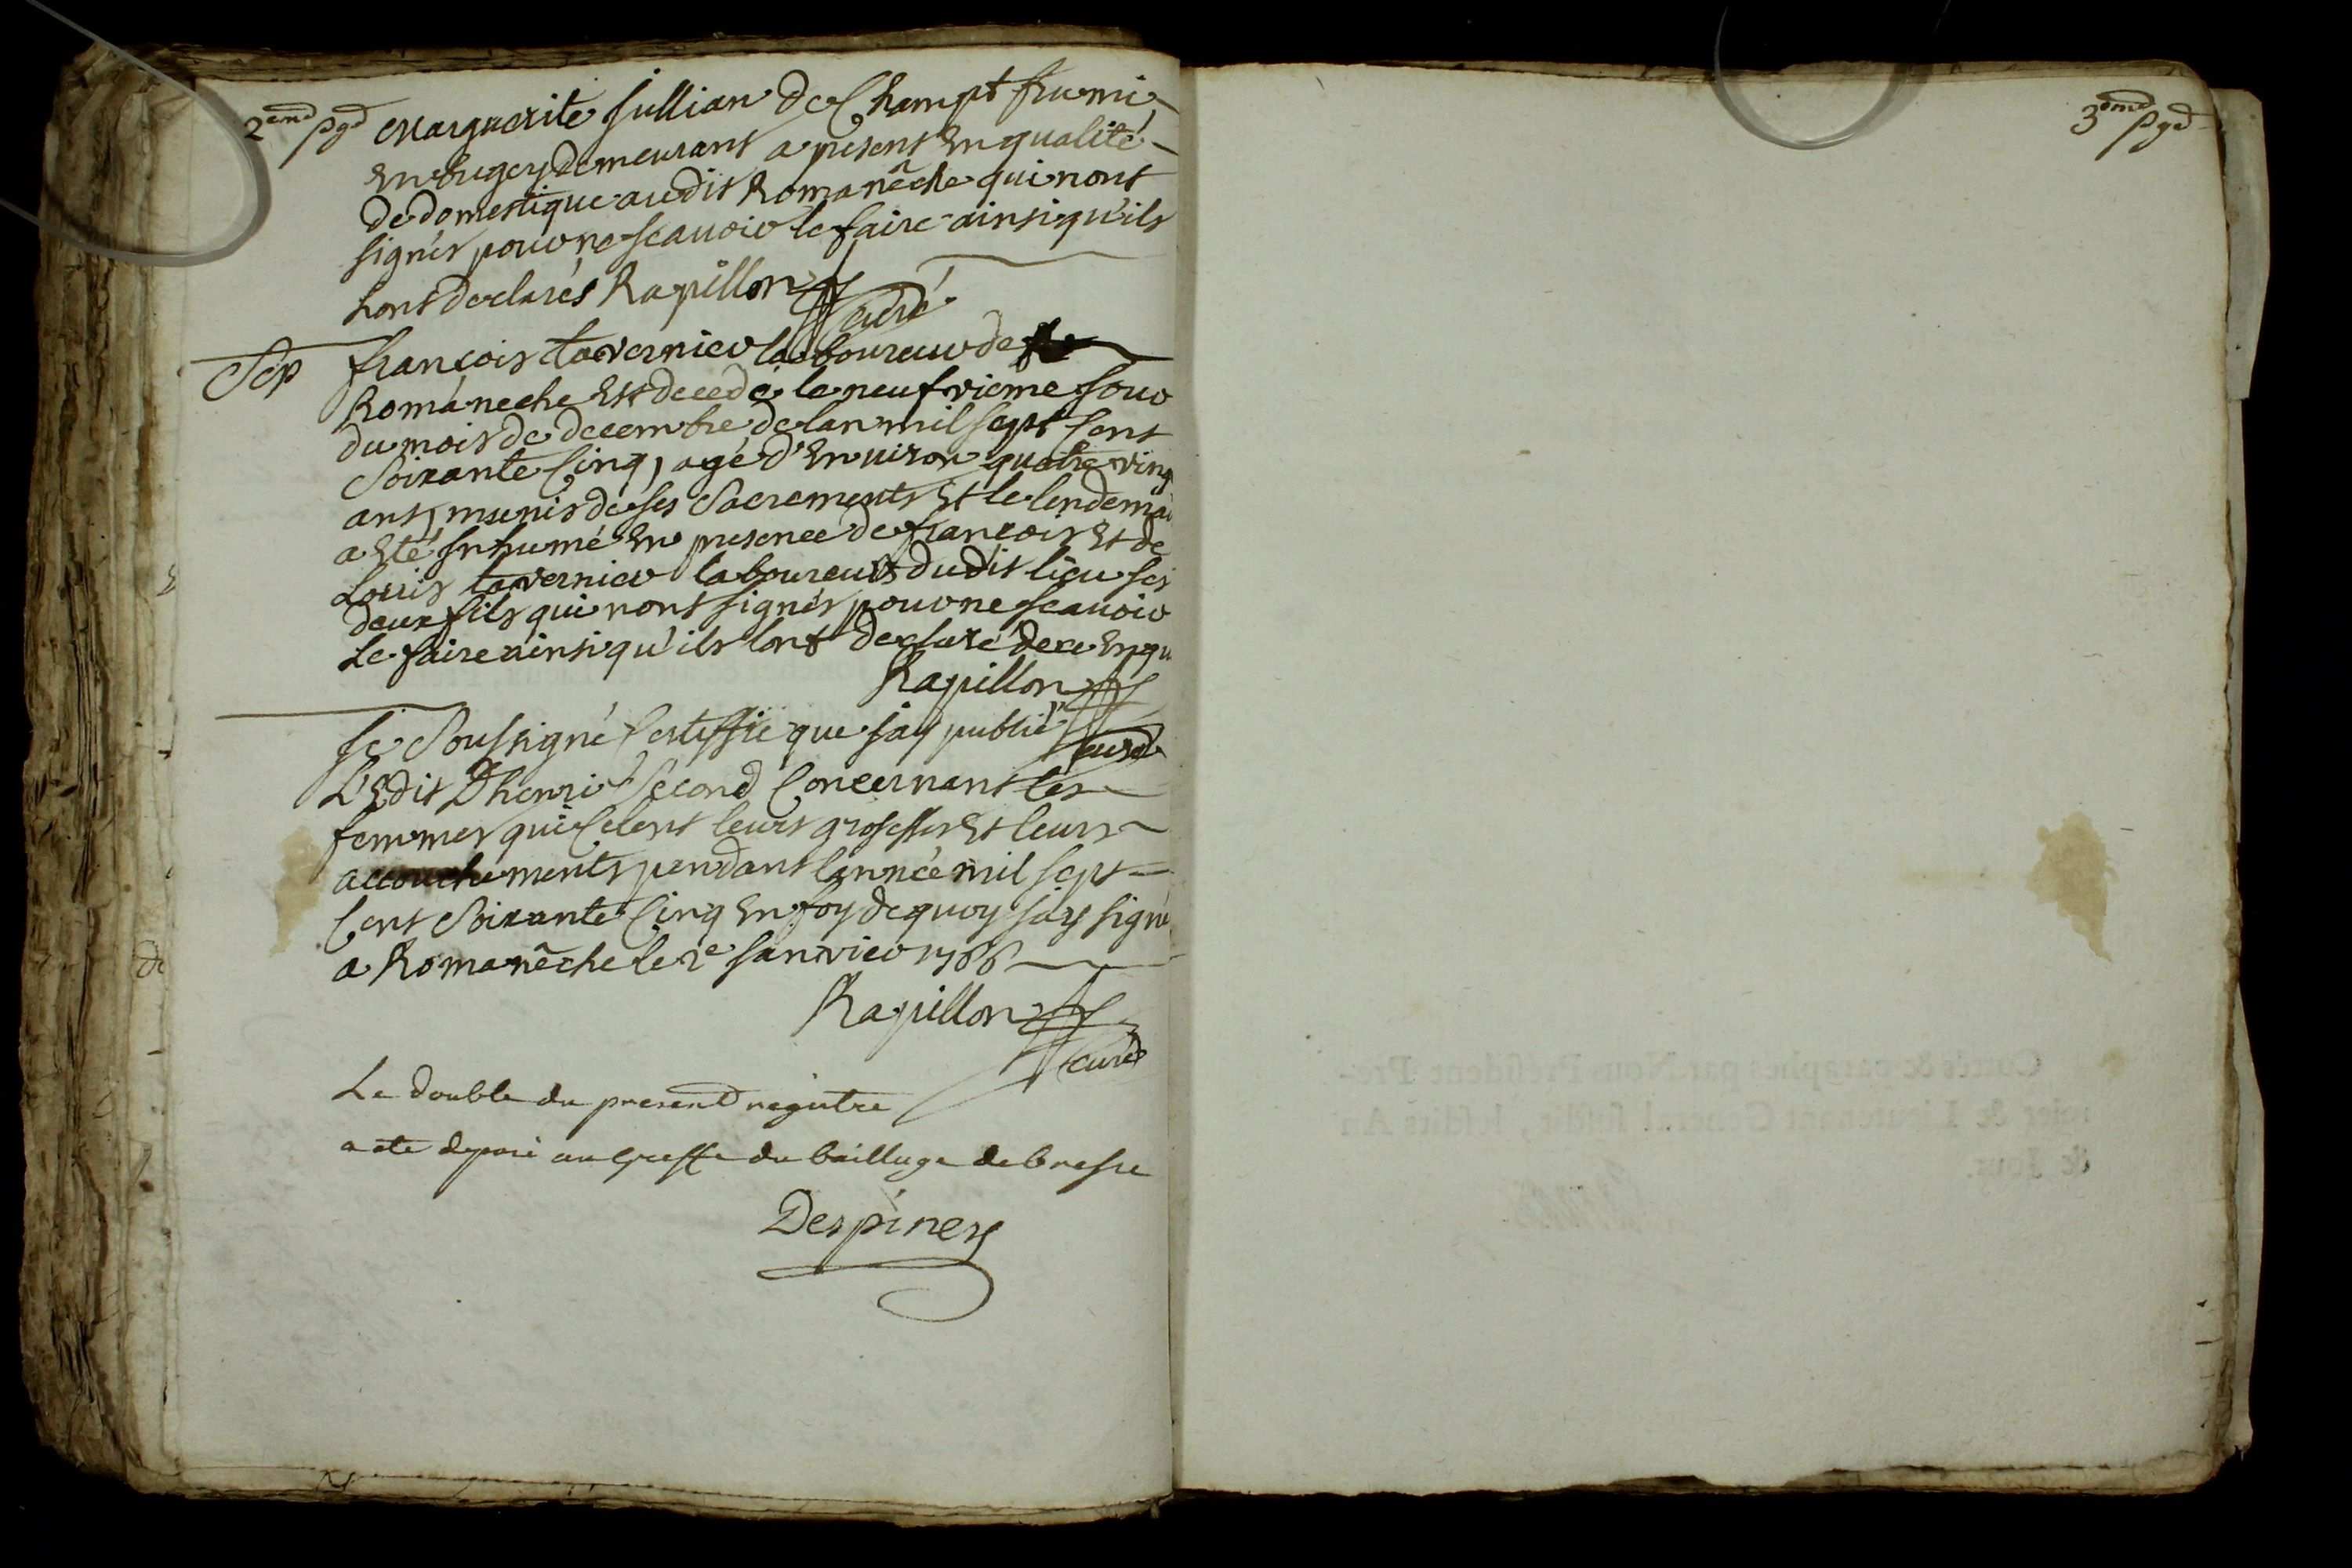 2eme pge Marguerite Jullian de Champt frumi
En bugey demeurant a present En qualité
de domestique audit Romanêche qui nont
signés pour ne scauoir le faire ainsi qu'ils
hont declarés Rapillon
curé
Sep françois tavernier laboureur de
Romaneche Est decedé le neufvieme jour
du mois de decembre de lan mil sept cent
Soixante cinq, agé d'Enuiron quatre ving
ans, munis de ses Sacrements Et le lendemai
a Eté Inhumé En presence de françois Et de
Louis tavernier laboureurs dudit lieu ses
deux fils qui nont signés pour ne scauoir
Le faire ainsi qu'ils lont declaré de ce Enqu
Rapillon
curé
Je Soussigné Certiffie que jay publié
L'Edit D'henri Second Concernant les
femmes qui Celent leurs grossesses Et leurs
accouchements pendant lannée mil sept
Cent Soixante Cinq En foy de quoy jay signé
a Romanêche le 2e janvier 1766
Rapillon
curé
Le double du present registre
a ete deposé au Greffe du bailliage de bresse
Despiney
3eme pge
Cottés & paraphés par Nous Président Pre-
mier & Lieutenant Général susdit, lesdits An
& Jour.